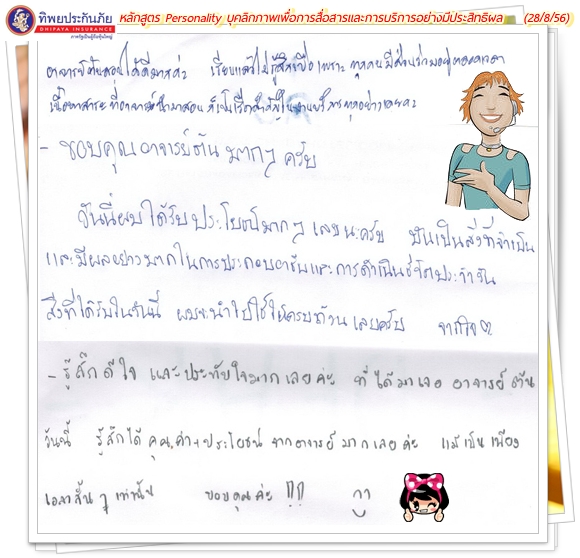 ทิพยประกันภัย
DHIPAYA INSURANCE
หลักสูตร Personality บุคลิกภาพเพื่อการสื่อสารและการบริการอย่างมีประสิทธิผล (28/8/56)
อาจารย์ต้นสอนได้ดีมากค่ะ เรียนแล้วไม่รู้สึกเบื่อ เพราะทุกคนมีส่วนร่วมอยู่ตลอดเวลา
เนื้อหาสาระที่อาจารย์นำมาสอน ก็เป็น
- ขอบคุณอาจารย์ต้น มากๆ ครับ
วันนี้ผมได้รับประโยชน์มากๆ เลยนะครับ มันเป็นสิ่งที่จำเป็น
และมีผลอย่างมากในการประกอบอาชีพและการดำเนินชีวิตประจำวัน
สิ่งที่ได้รับในวันนี้ ผมจะนำไปใช้ให้ครบถ้วนเลยครับ จากใจ
- รู้สึกดีใจ และประทับใจมากเลยค่ะ ที่ได้มาเจอ อาจารย์ต้น
วันนี้ รู้สึกได้คุณค่า+ประโยชน์ จากอาจารย์มากเลยค่ะ แม้เป็นเพียง
เวลาสั้นๆ เท่านั้น ขอบคุณค่ะ !!